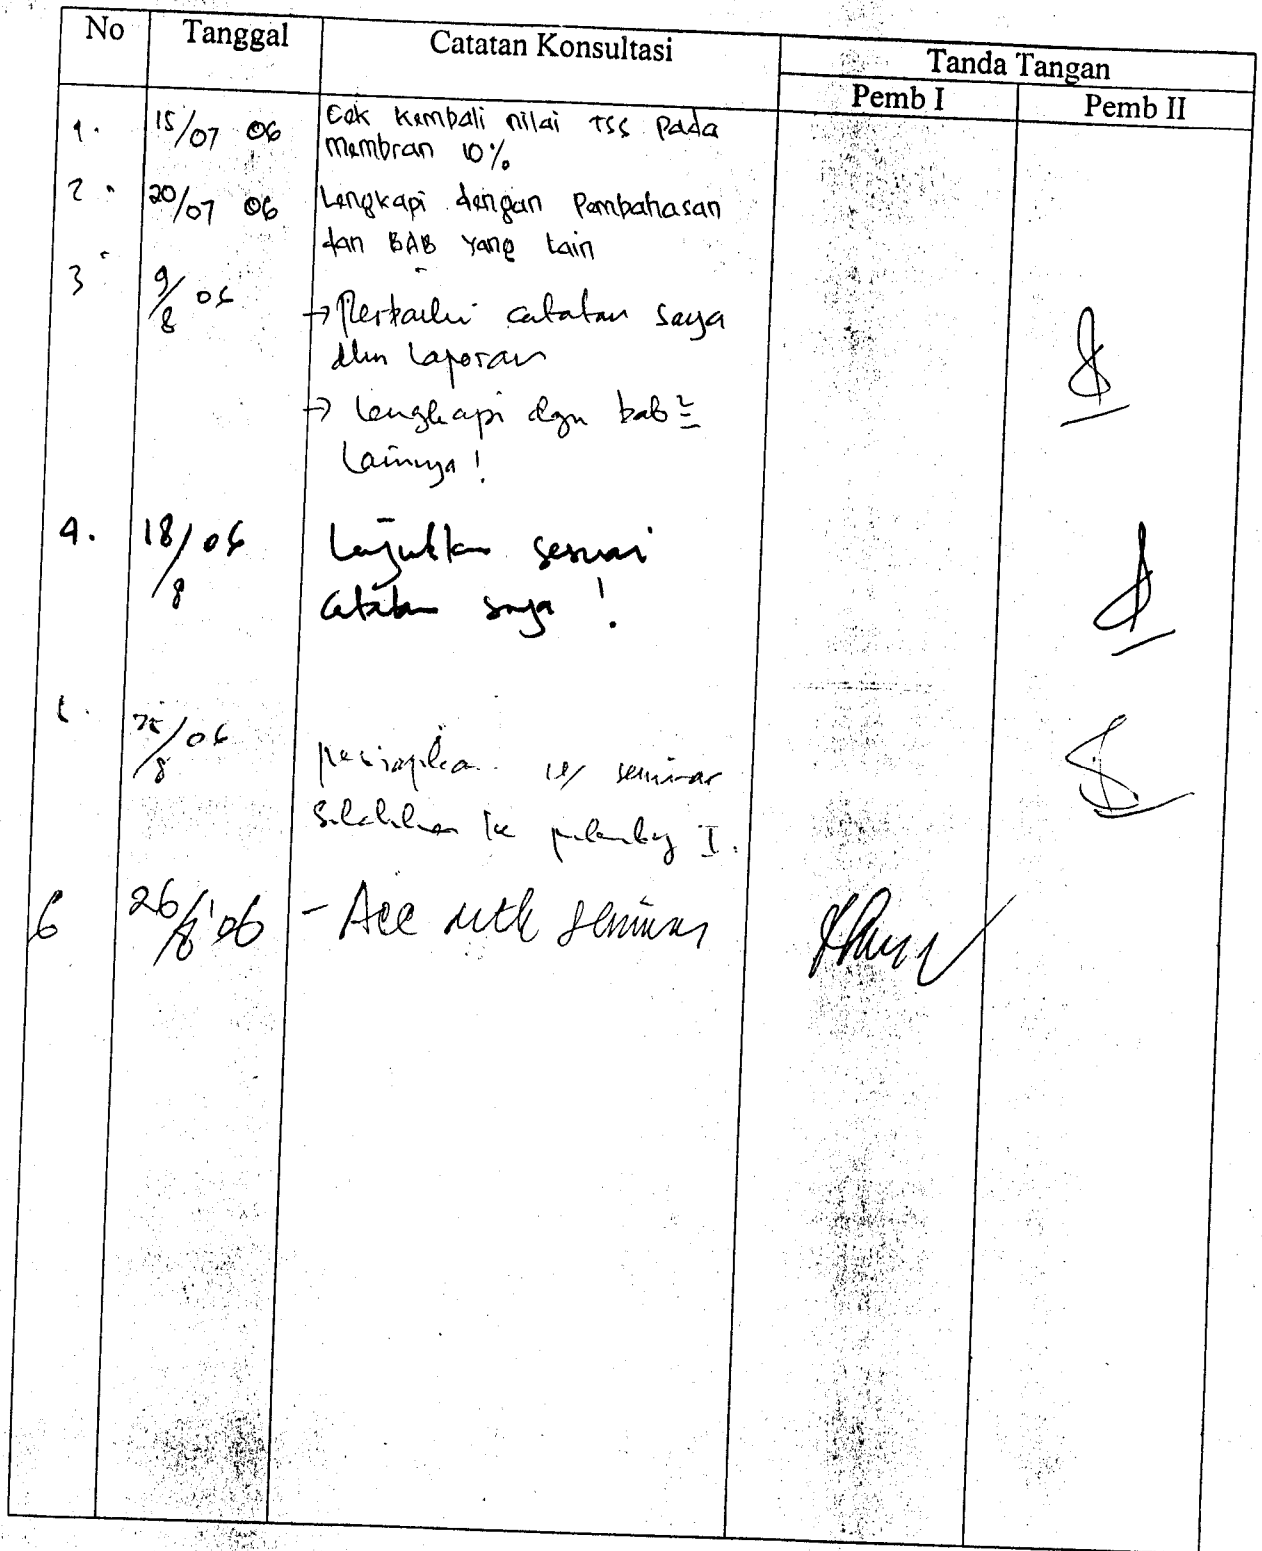 No Tanggal Catatan Konsultasi Tanda Tangan
Pemb I Pemb II
1. 15/07 06 Cek Kembali nilai TSS pada
membran 10%
2. 20/07 06 Lengkapi dengan Pembahasan
dan BAB yang lain
3 9/8 06
→ Perbaiki catatan saya
dlm laporan
→ lengkapi dgn bab²
lainnya !
4. 18/8 06 Lanjutkan sesuai
catatan saya !
25/8 06
persiapkan u/ seminar
Silahkan ke I.
6 26/8 '06 - Acc utk seminar